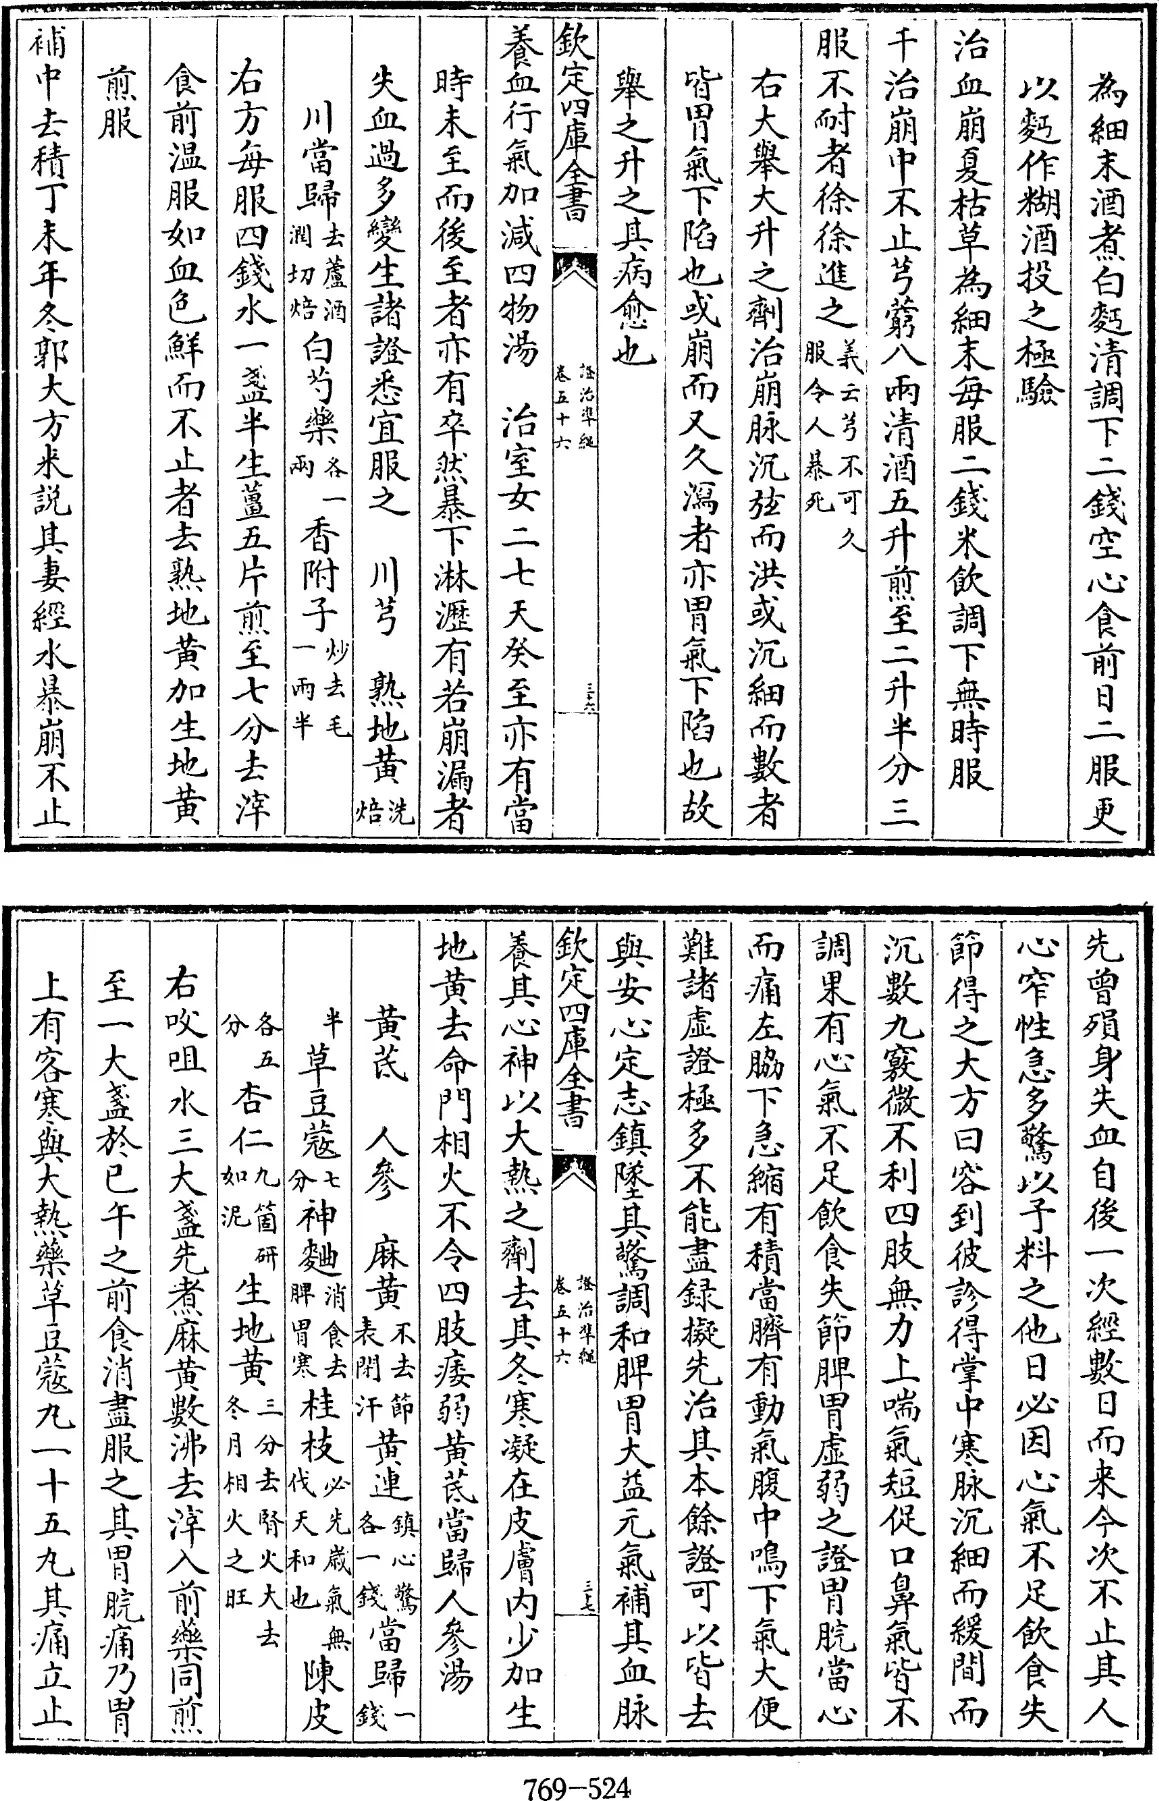 為細末酒煮白麪清調下二錢空心食前日二服更
以麪作糊酒投之極驗
治血崩夏枯草為細末每服二錢米飲調下無時服
千治崩中不止芎藭八兩清酒五升煎至二升半分三
服不耐者徐徐進之義云芎不可久服令人暴死
右大舉大升之劑治崩脉沉弦而洪或沉細而數者
皆胃氣下陷也或崩而又久瀉者亦胃氣下陷也故
舉之升之其病愈也
欽定四庫全書 證治準繩卷五十六 三十六
養血行氣加減四物湯 治室女二七天癸至亦有當
時未至而後至者亦有卒然暴下淋瀝有若崩漏者
失血過多變生諸證悉宜服之 川芎 熟地黄洗焙
川當歸去蘆酒潤切焙 白芍藥各一兩 香附子炒去毛一兩半
右方每服四錢水一盞半生薑五片煎至七分去滓
食前温服如血色鮮而不止者去熟地黄加生地黄
煎服
補中去積丁未年冬郭大方来説其妻經水暴崩不止
先曾殞身失血自後一次經數日而来今次不止其人
心窄性急多驚以予料之他日必因心氣不足飲食失
節得之大方曰容到彼診得掌中寒脉沉細而緩間而
沉數九竅微不利四肢無力上喘氣短促口鼻氣皆不
調果有心氣不足飲食失節脾胃虚弱之證胃脘當心
而痛左脇下急縮有積當臍有動氣腹中鳴下氣大便
難諸虚證極多不能盡録擬先治其本餘證可以皆去
與安心定志鎮墜其驚調和脾胃大益元氣補其血脉
欽定四庫全書 證治準繩卷五十六 三十七
養其心神以大熱之劑去其冬寒凝在皮膚内少加生
地黄去命門相火不令四肢痿弱黄茋當歸人參湯
黄茋 人參 麻黄不去節表閉汗 黄連鎮心驚各一錢 當歸一錢
半 草豆蔻七分 神麯消食去脾胃寒 桂枝必先歳氣無伐天和也 陳皮
各五分 杏仁九箇研如泥 生地黄三分去腎火大去冬月相火之旺
右㕮咀水三大盞先煮麻黄數沸去滓入前藥同煎
至一大盞於巳午之前食消盡服之其胃脘痛乃胃
上有客寒與大熱藥草豆蔻丸一十五丸其痛立止
769-524